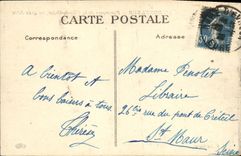 CARTE POSTALE
Correspondance
Adresse
A bientôt et
bons baisers à tous
Thérèse
Madame Penotet
Libraire
26 bis rue du pont de Créteil
St Maur
Seine